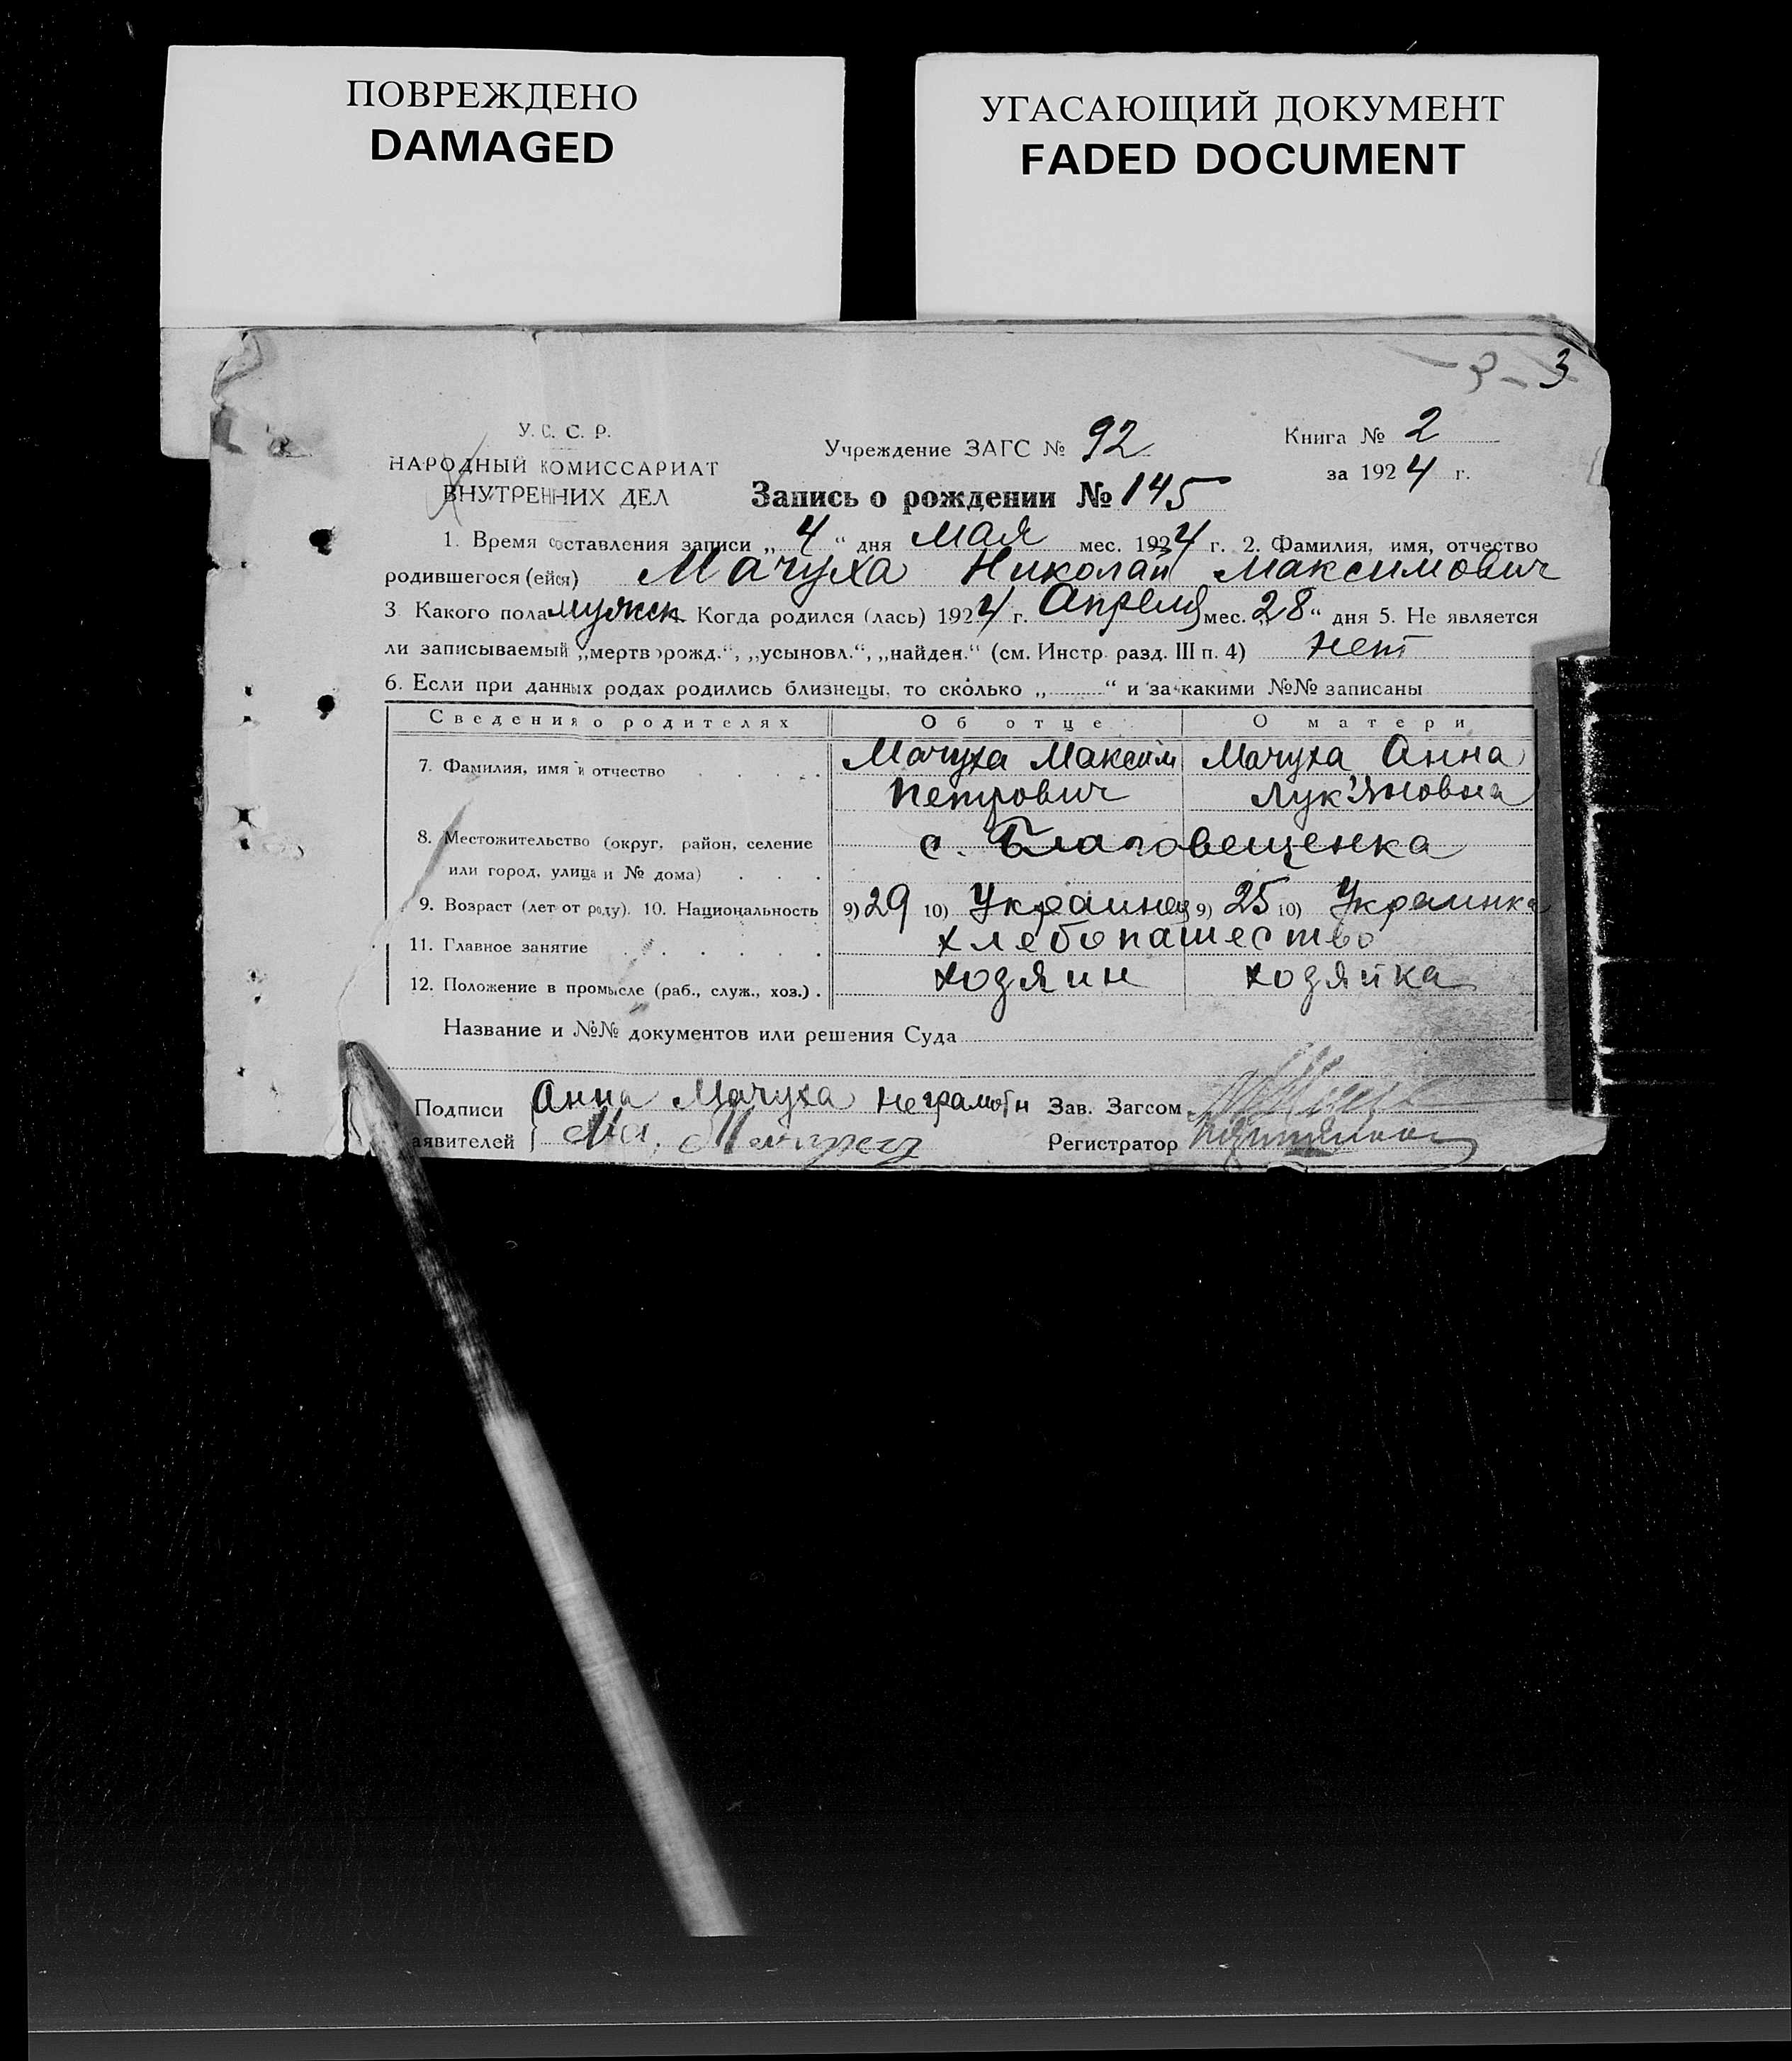 ПОВРЕЖДЕНО
DAMAGED
УГАСАЮЩИЙ ДОКУМЕНТ
FADED DOCUMENT
3
У. С. С. Р.
НАРОДНЫЙ КОМИССАРИАТ
ВНУТРЕННИХ ДЕЛ
Учреждение ЗАГС № 92
Книга № 2
за 1924 г.
Запись о рождении № 145
1. Время составления записи „ 4 “ дня мая мес. 1924 г. 2. Фамилия, имя, отчество
родившегося (ейся) Мачуха Николай Максимович
3 Какого пола мужск Когда родился (лась) 1924 г. Апреля мес. „28“ дня 5. Не является
ли записываемый „мертворожд.“, „усыновл.“, „найден.“ (см. Инстр. разд. III п. 4) нет
6. Если при данных родах родились близнецы, то сколько „ “ и за какими №№ записаны
Сведения о родителях Об отце О матери
7. Фамилия, имя и отчество Мачуха Максим Мачуха Анна
Петрович Лук'яновна
8. Местожительство (округ, район, селение с. Благовещенка
или город, улица и № дома)
9. Возраст (лет от роду). 10. Национальность 9) 29 10) Украинец 9) 25 10) Украинка
11. Главное занятие хлебопашество
12. Положение в промысле (раб., служ., хоз.) хозяин хозяйка
Название и №№ документов или решения Суда
Подписи Анна Мачуха неграмотн Зав. Загсом
аявителей Мачуха Регистратор